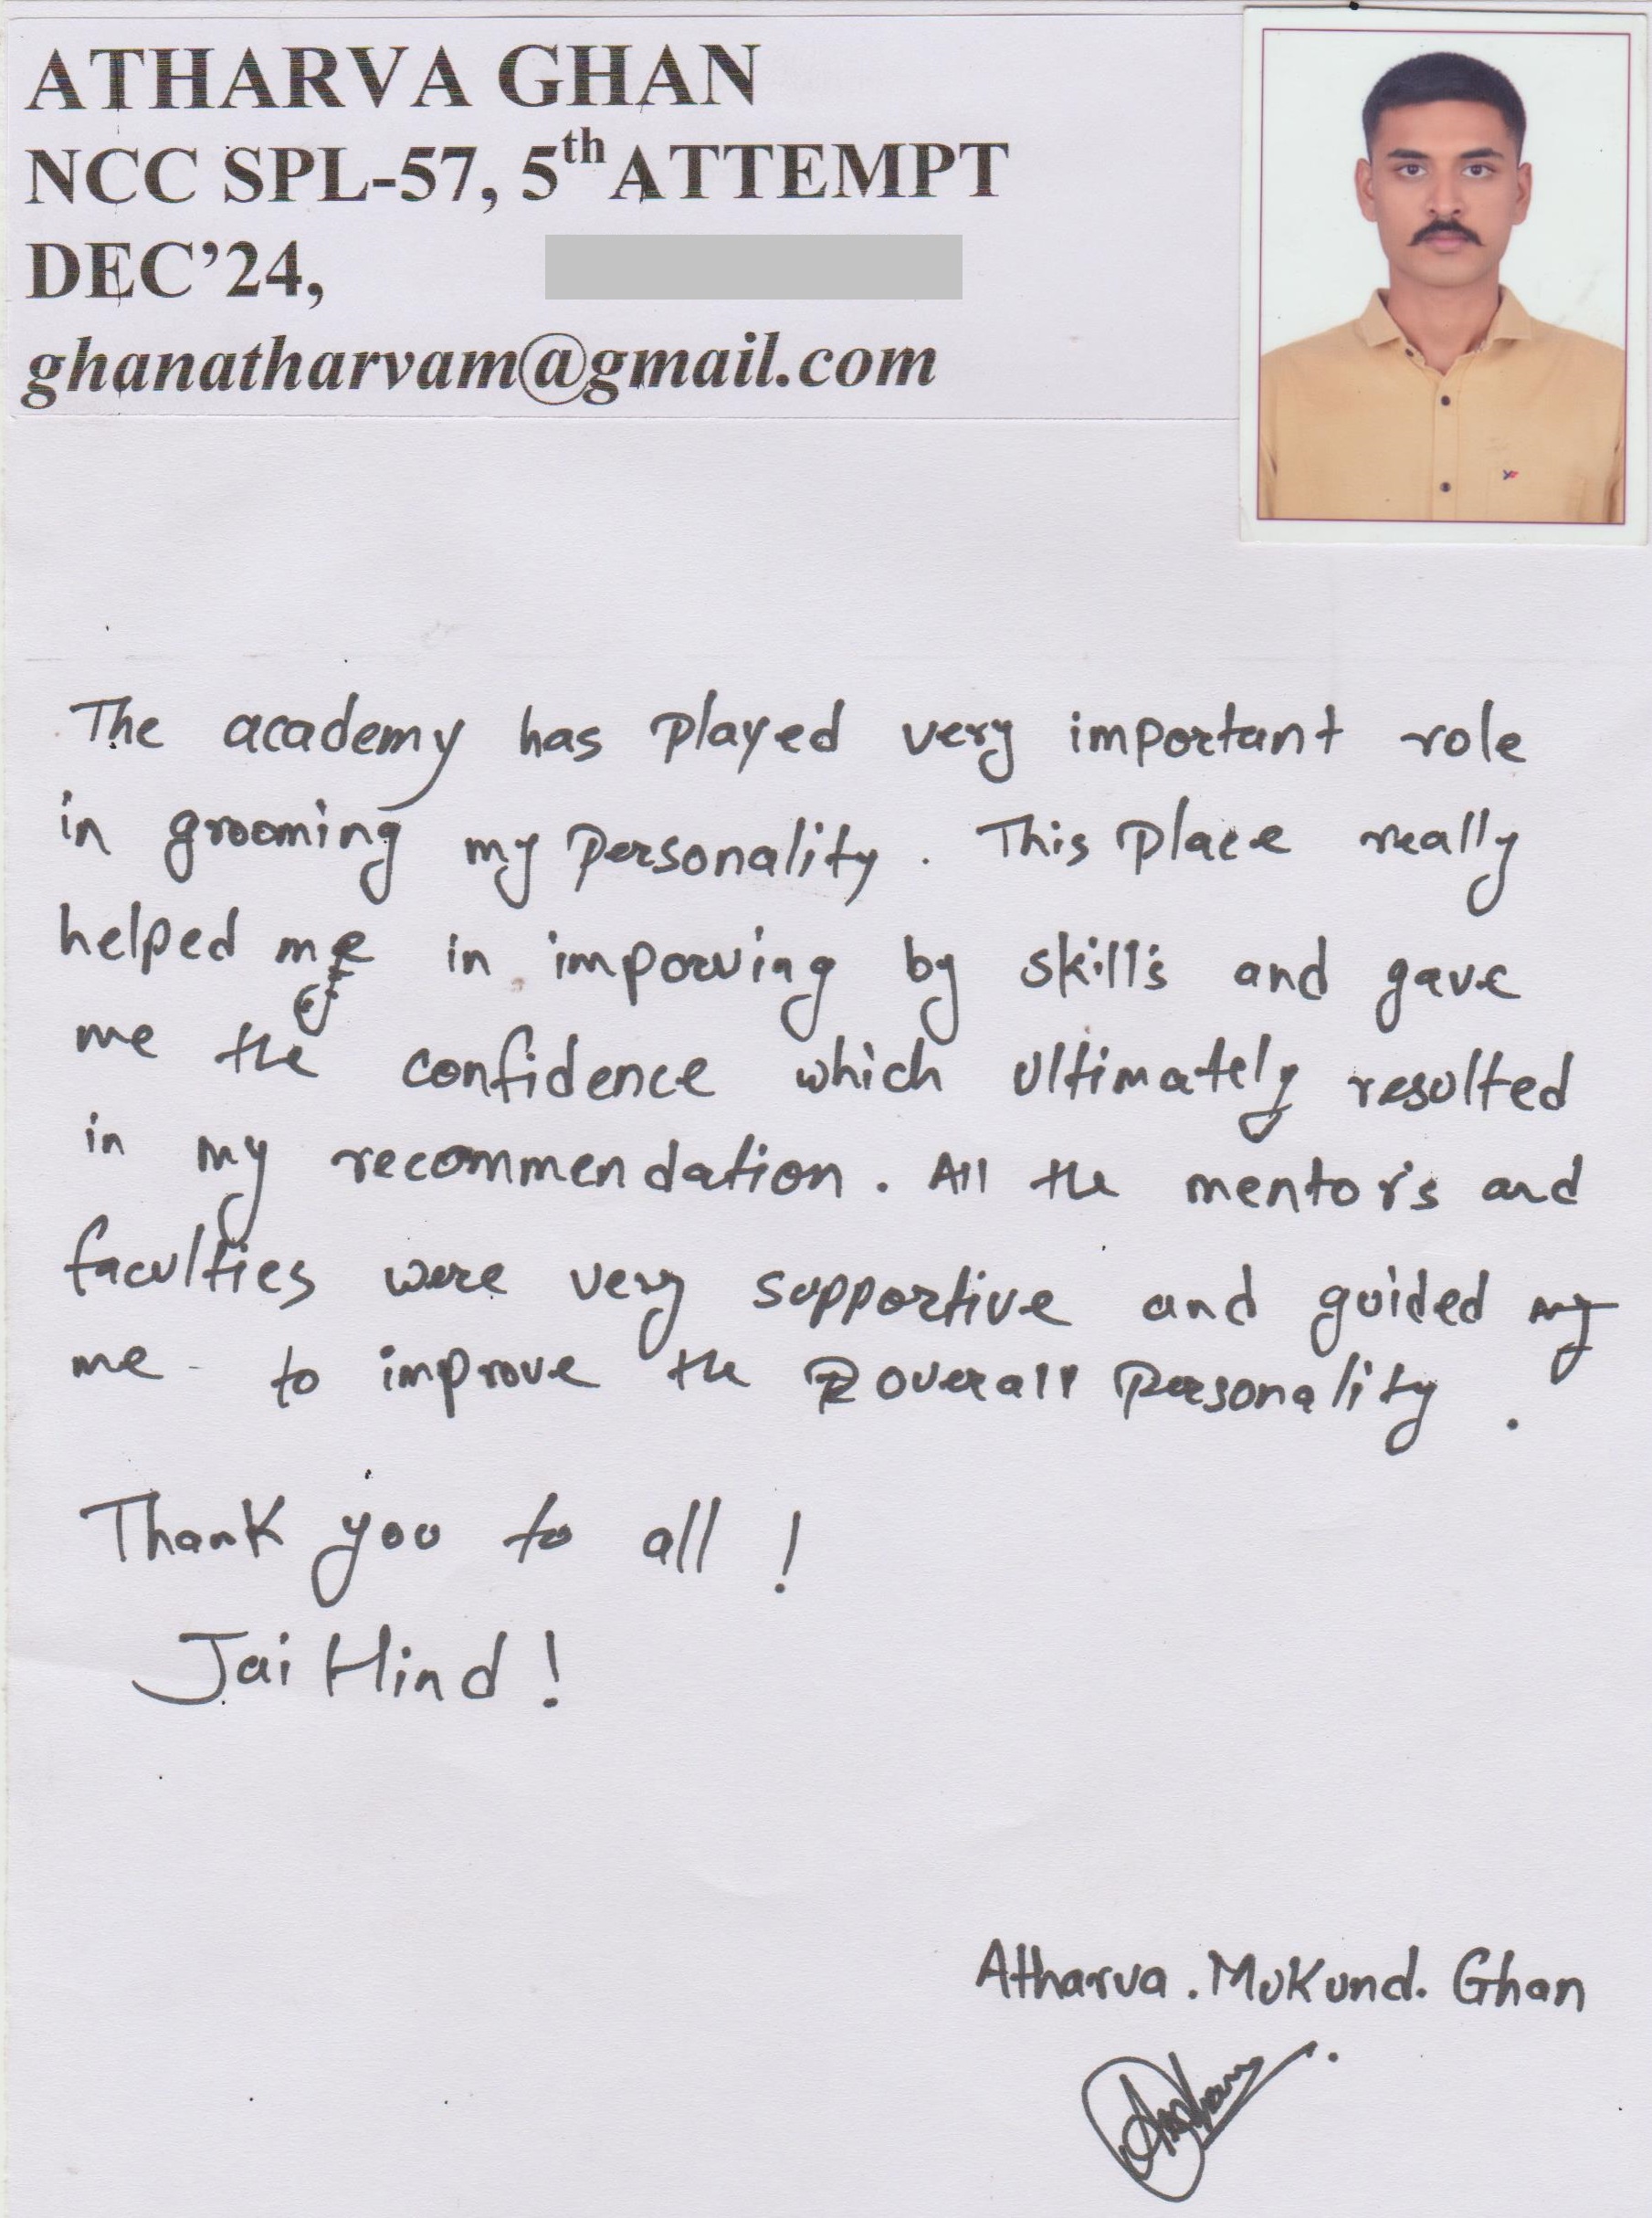 ATHARVA GHAN
NCC SPL-57, 5th ATTEMPT
DEC'24,
ghanatharvam@gmail.com
The academy has played very important role
in grooming my personality. This place really
helped me in imporving by skills and gave
me the confidence which ultimately resulted
in my recommendation. All the mentors and
faculties were very supportive and guided my
me to improve the overall personality.
Thank you to all !
Jai Hind !
Atharva. Mukund. Ghan